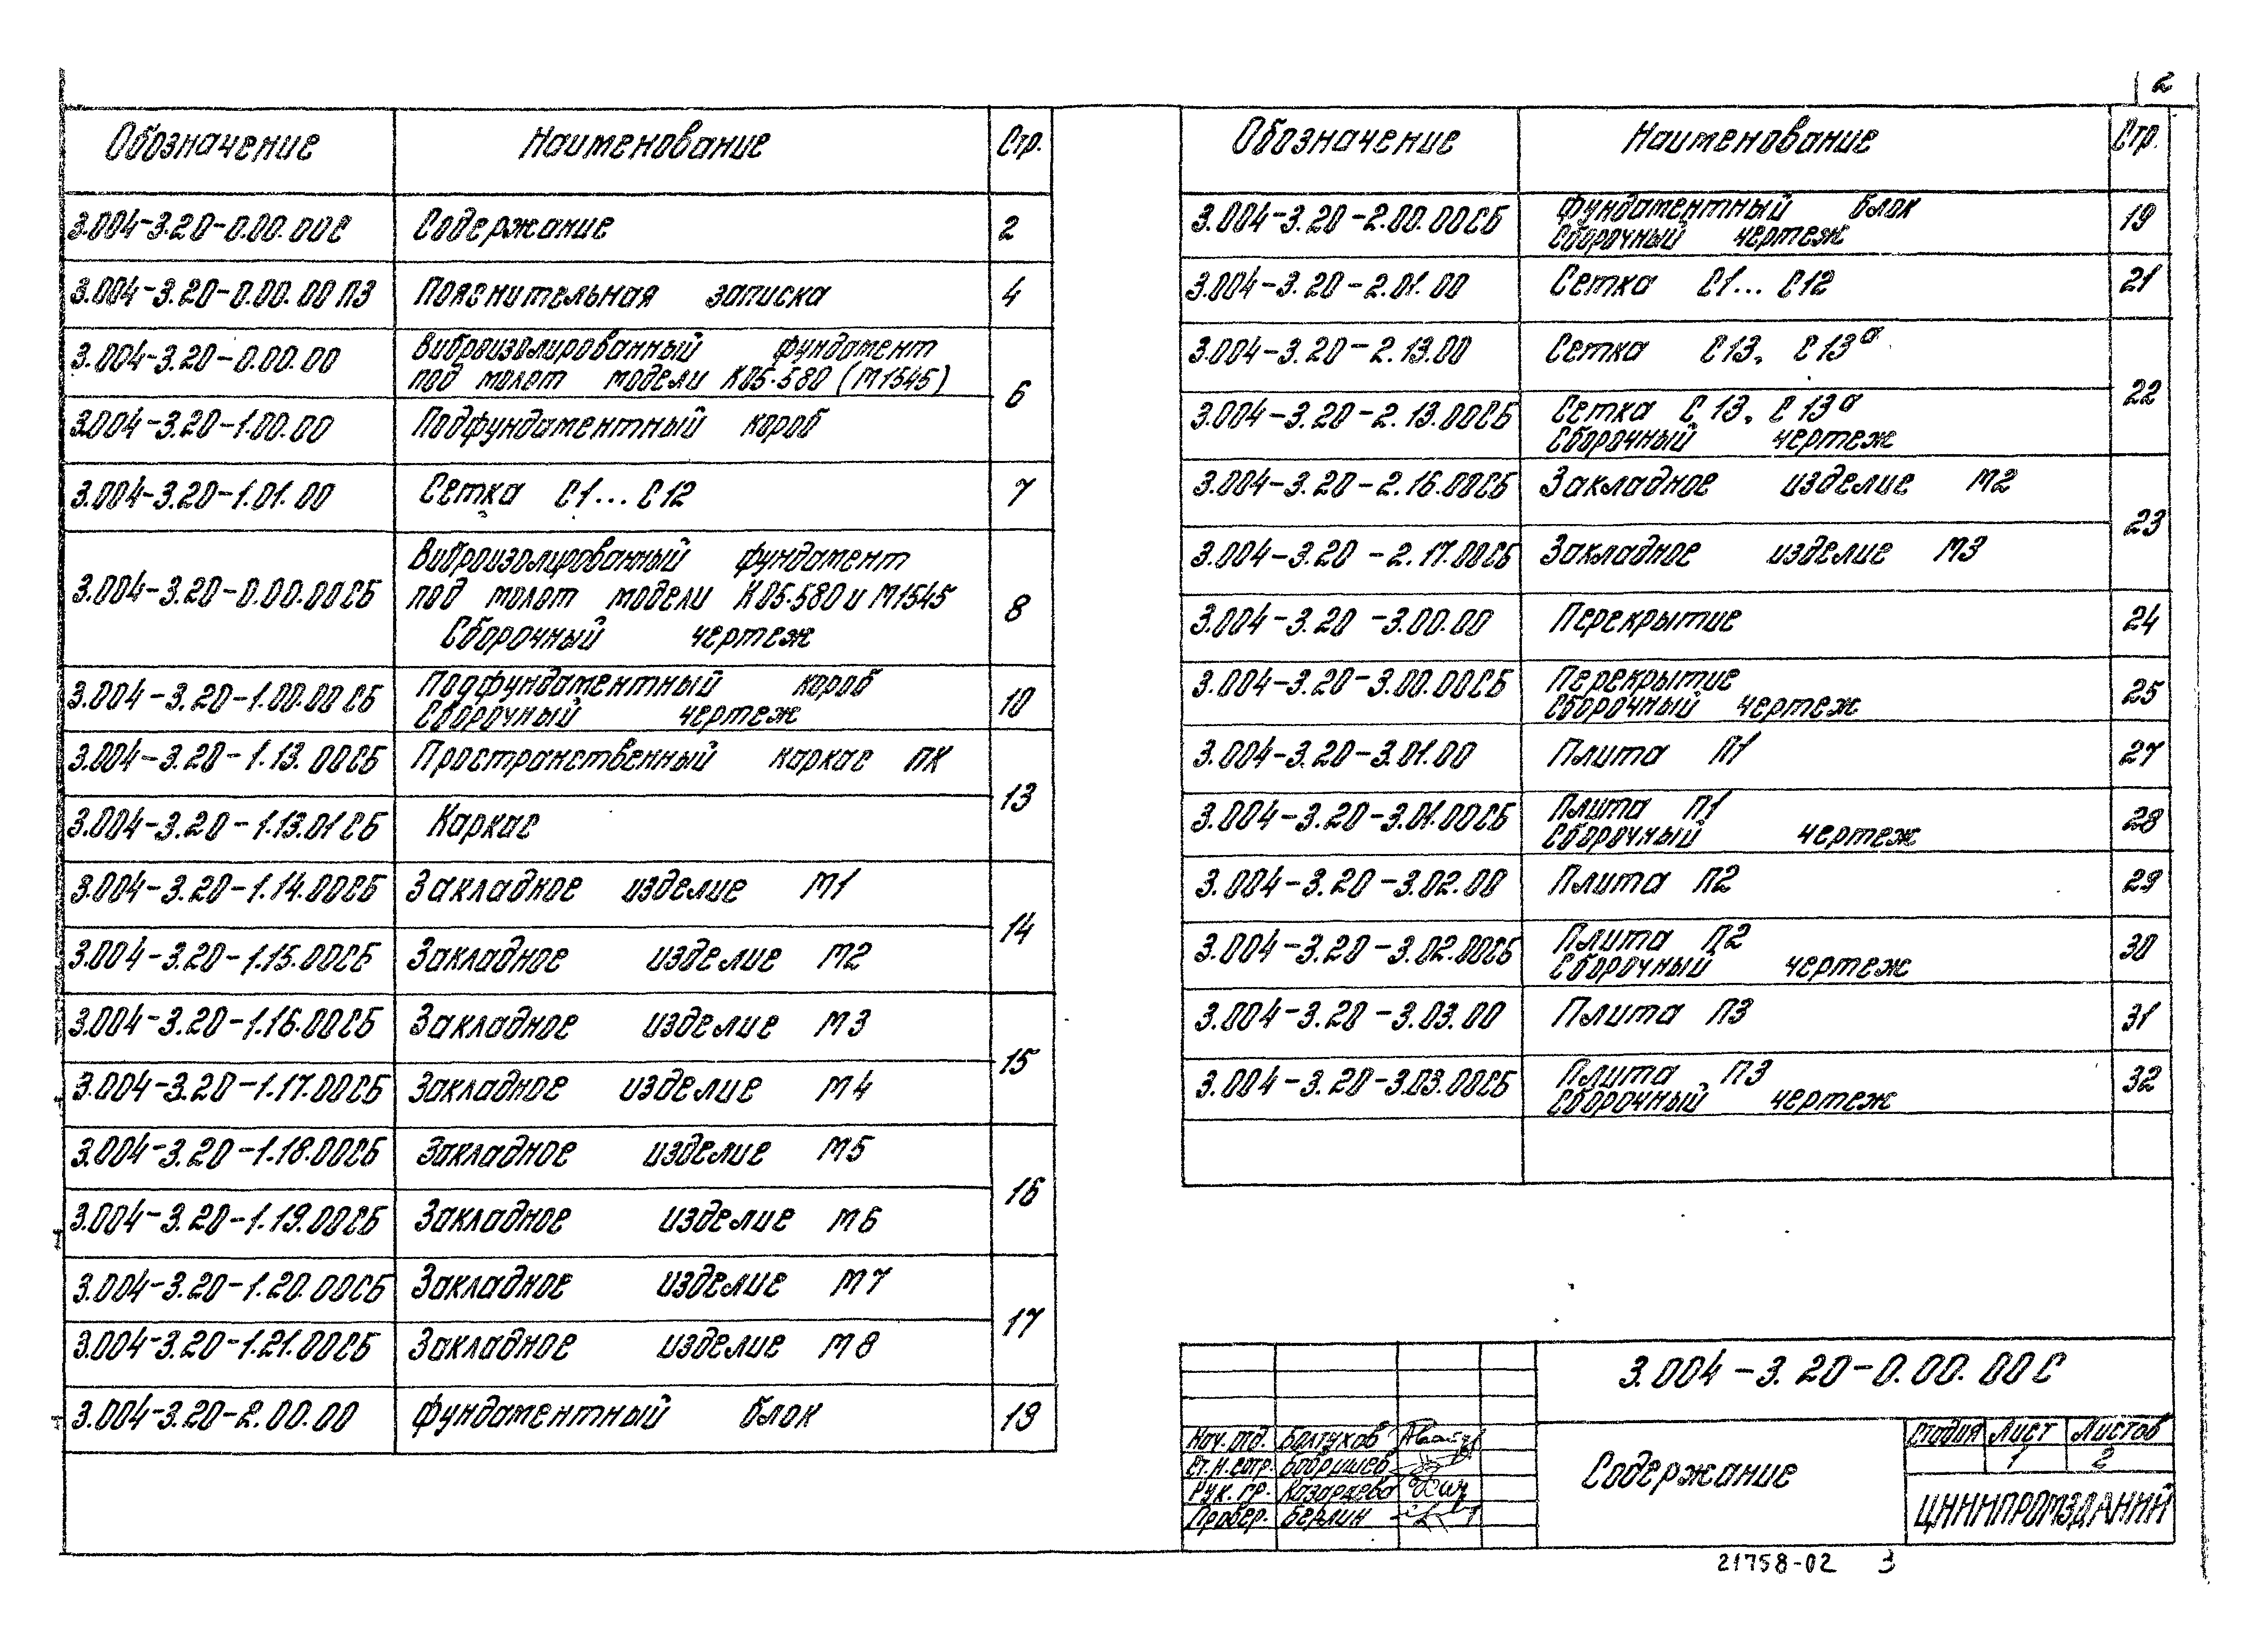 2
Обозначение Наименование Стр.
3.004-3.20-0.00.00С Содержание 2
3.004-3.20-0.00.00 ПЗ Пояснительная записка 4
3.004-3.20-0.00.00 Виброизолированный фундамент
под молот модели К05.580 (М1545) 6
3.004-3.20-1.00.00 Подфундаментный короб
3.004-3.20-1.01.00 Сетка С1...С12 7
Виброизолированный фундамент
3.004-3.20-0.00.00СБ под молот модели К05.580 и М1545 8
Сборочный чертеж
3.004-3.20-1.00.00СБ Подфундаментный короб 10
Сборочный чертеж
3.004-3.20-1.13.00СБ Пространственный каркас ПК
13
3.004-3.20-1.13.01СБ Каркас
3.004-3.20-1.14.00СБ Закладное изделие М1
14
3.004-3.20-1.15.00СБ Закладное изделие М2
3.004-3.20-1.16.00СБ Закладное изделие М3
15
3.004-3.20-1.17.00СБ Закладное изделие М4
3.004-3.20-1.18.00СБ Закладное изделие М5
16
3.004-3.20-1.19.00СБ Закладное изделие М6
3.004-3.20-1.20.00СБ Закладное изделие М7
17
3.004-3.20-1.21.00СБ Закладное изделие М8
3.004-3.20-2.00.00 Фундаментный блок 19
Обозначение Наименование Стр.
3.004-3.20-2.00.00СБ Фундаментный блок 19
Сборочный чертеж
3.004-3.20-2.01.00 Сетка С1...С12 21
3.004-3.20-2.13.00 Сетка С13, С13а
22
3.004-3.20-2.13.00СБ Сетка С13, С13а
Сборочный чертеж
3.004-3.20-2.16.00СБ Закладное изделие М2
23
3.004-3.20-2.17.00СБ Закладное изделие М3
3.004-3.20-3.00.00 Перекрытие 24
3.004-3.20-3.00.00СБ Перекрытие 25
Сборочный чертеж
3.004-3.20-3.01.00 Плита П1 27
3.004-3.20-3.01.00СБ Плита П1 28
Сборочный чертеж
3.004-3.20-3.02.00 Плита П2 29
3.004-3.20-3.02.00СБ Плита П2 30
Сборочный чертеж
3.004-3.20-3.03.00 Плита П3 31
3.004-3.20-3.03.00СБ Плита П3 32
Сборочный чертеж
3.004-3.20-0.00.00С
Нач. отд. Болтухов
Ст.н.сотр. Бобришев
Рук. гр.
Провер. Берлин
Содержание
Стадия Лист Листов
1 2
ЦНИИПРОМЗДАНИЙ
21758-02 3